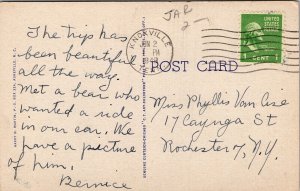 JAR
2-
KNOXVILLE
JUN 2
PM
UNITED STATES
1 CENT 1
POST CARD
The trip has
been beautiful
all the way.
Met a bear who
wanted a ride
in our car. We
have a picture
of him.
Bernice
Miss Phyllis Van Cise
17 Cayuga St
Rochester 7, N.Y.